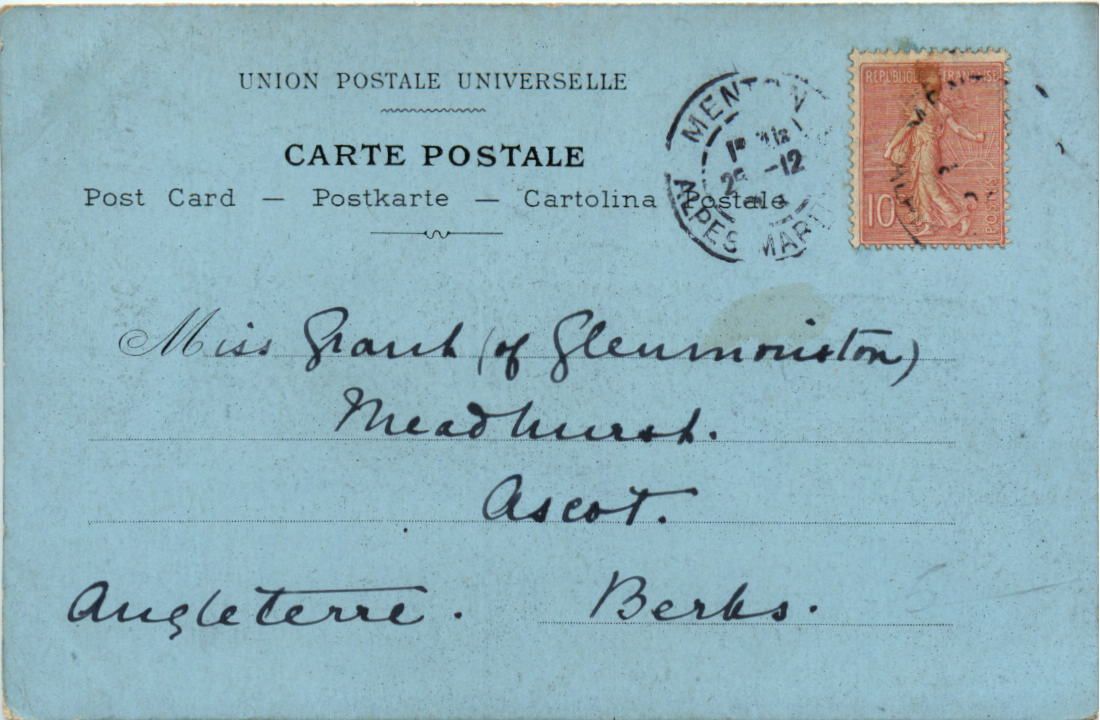 UNION POSTALE UNIVERSELLE
CARTE POSTALE
Post Card — Postkarte — Cartolina Postale
MENTON
25 -12
ALPES MARIT
REPUBLIQUE FRANÇAISE
10
POSTES
Miss Grant (of Glenmoriston)
Meadhurst.
Ascot.
Angleterre. Berks.